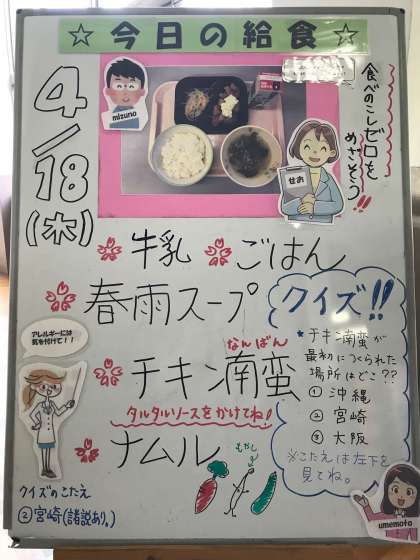 ☆ 今日の給食 ☆
4/18(木)
mizuno
食べのこしゼロを
めざそう!!
牛乳 ごはん
春雨スープ
チキン南蛮
なんばん
タルタルソースをかけてね!
ナムル
もやし
アレルギーには
気を付けて!!
クイズ!!
★チキン南蛮が
最初につくられた
場所はどこ??
①沖縄
②宮崎
③大阪
※こたえは左下を
見てね。
クイズのこたえ
②宮崎(諸説あり。)
umemoto